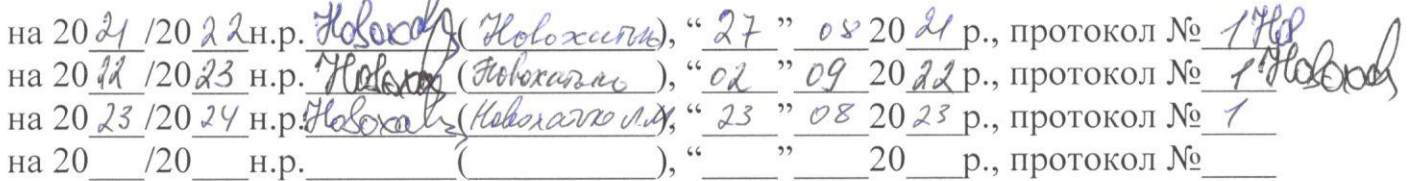 на 2021/2022н.р. Новохат (Новохатько), “27” 08 2021 р., протокол № 1 Нов
на 2022/2023 н.р. Новохат (Новохатько), “02” 09 2022 р., протокол № 1 Новохат
на 2023/2024 н.р. Новохат (Новохатько Л.М), “23” 08 2023 р., протокол № 1
на 20___/20___н.р.___________(______________), “____” _____20___р., протокол №_____